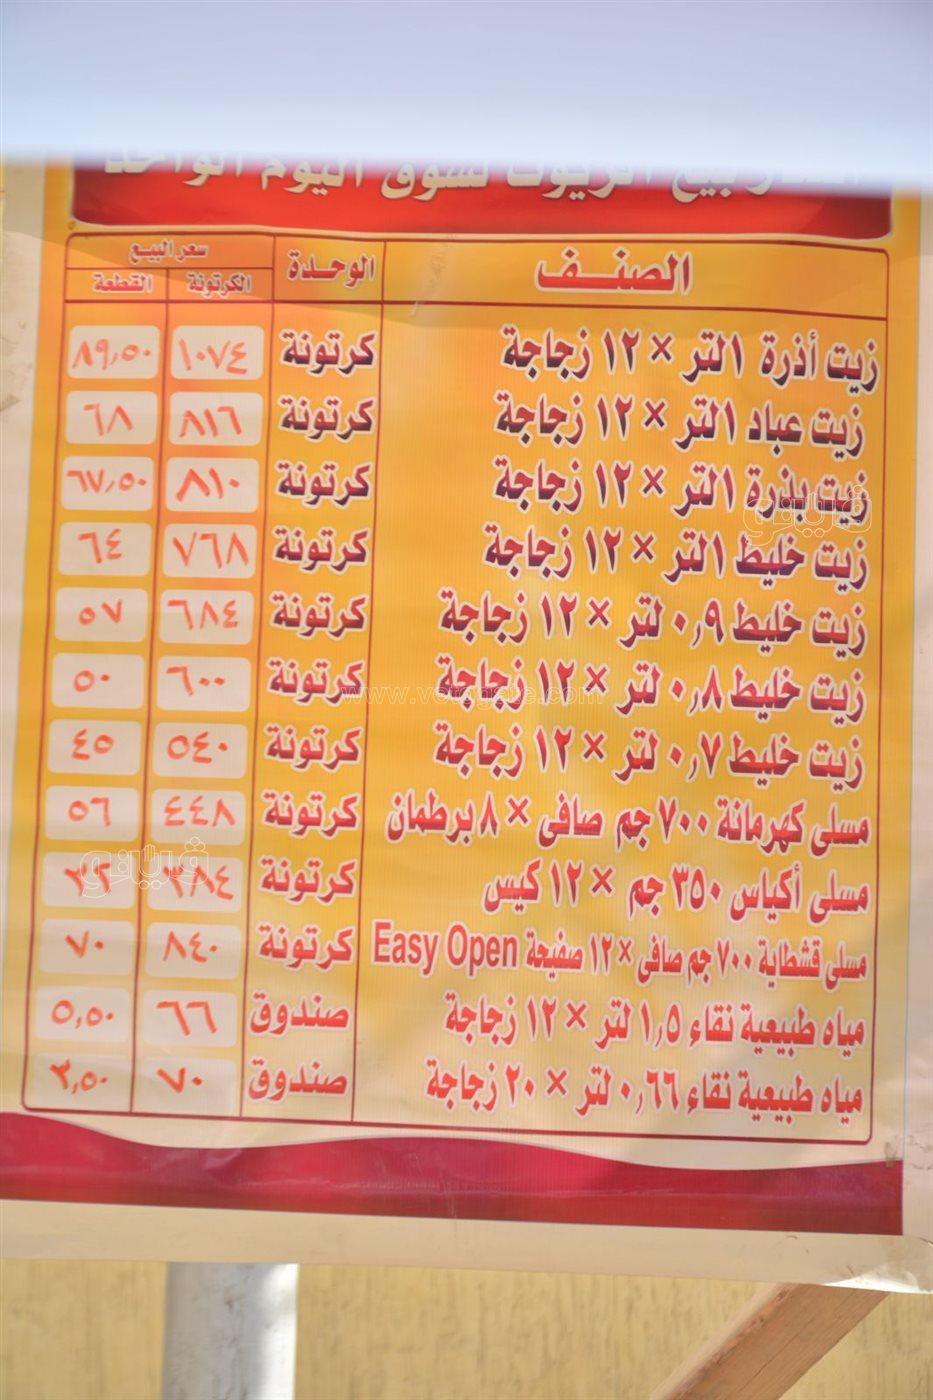 أسعار بيع الزيوت لسوق اليوم الواحد
الصنف الوحدة سعر البيع
الكرتونة القطعة
زيت أذرة ١لتر × ١٢ زجاجة كرتونة ١٠٧٤ ٨٩,٥٠
زيت عباد ١لتر × ١٢ زجاجة كرتونة ٨١٦ ٦٨
زيت بذرة ١لتر × ١٢ زجاجة كرتونة ٨١٠ ٦٧,٥٠
زيت خليط ١لتر × ١٢ زجاجة كرتونة ٧٦٨ ٦٤
زيت خليط ٠,٩ لتر × ١٢ زجاجة كرتونة ٦٨٤ ٥٧
زيت خليط ٠,٨ لتر × ١٢ زجاجة كرتونة ٦٠٠ ٥٠
زيت خليط ٠,٧ لتر × ١٢ زجاجة كرتونة ٥٤٠ ٤٥
مسلى كهرمانة ٧٠٠ جم صافى × ٨ برطمان كرتونة ٤٤٨ ٥٦
مسلى أكياس ٣٥٠ جم × ١٢ كيس كرتونة ٣٨٤ ٣٢
مسلى قشطاية ٧٠٠ جم صافى × ١٢ صفيحة Easy Open كرتونة ٨٤٠ ٧٠
مياه طبيعية نقاء ١,٥ لتر × ١٢ زجاجة صندوق ٦٦ ٥,٥٠
مياه طبيعية نقاء ٠,٦٦ لتر × ٢٠ زجاجة صندوق ٧٠ ٣,٥٠
فيتو
www.vetogate.com
فيتو